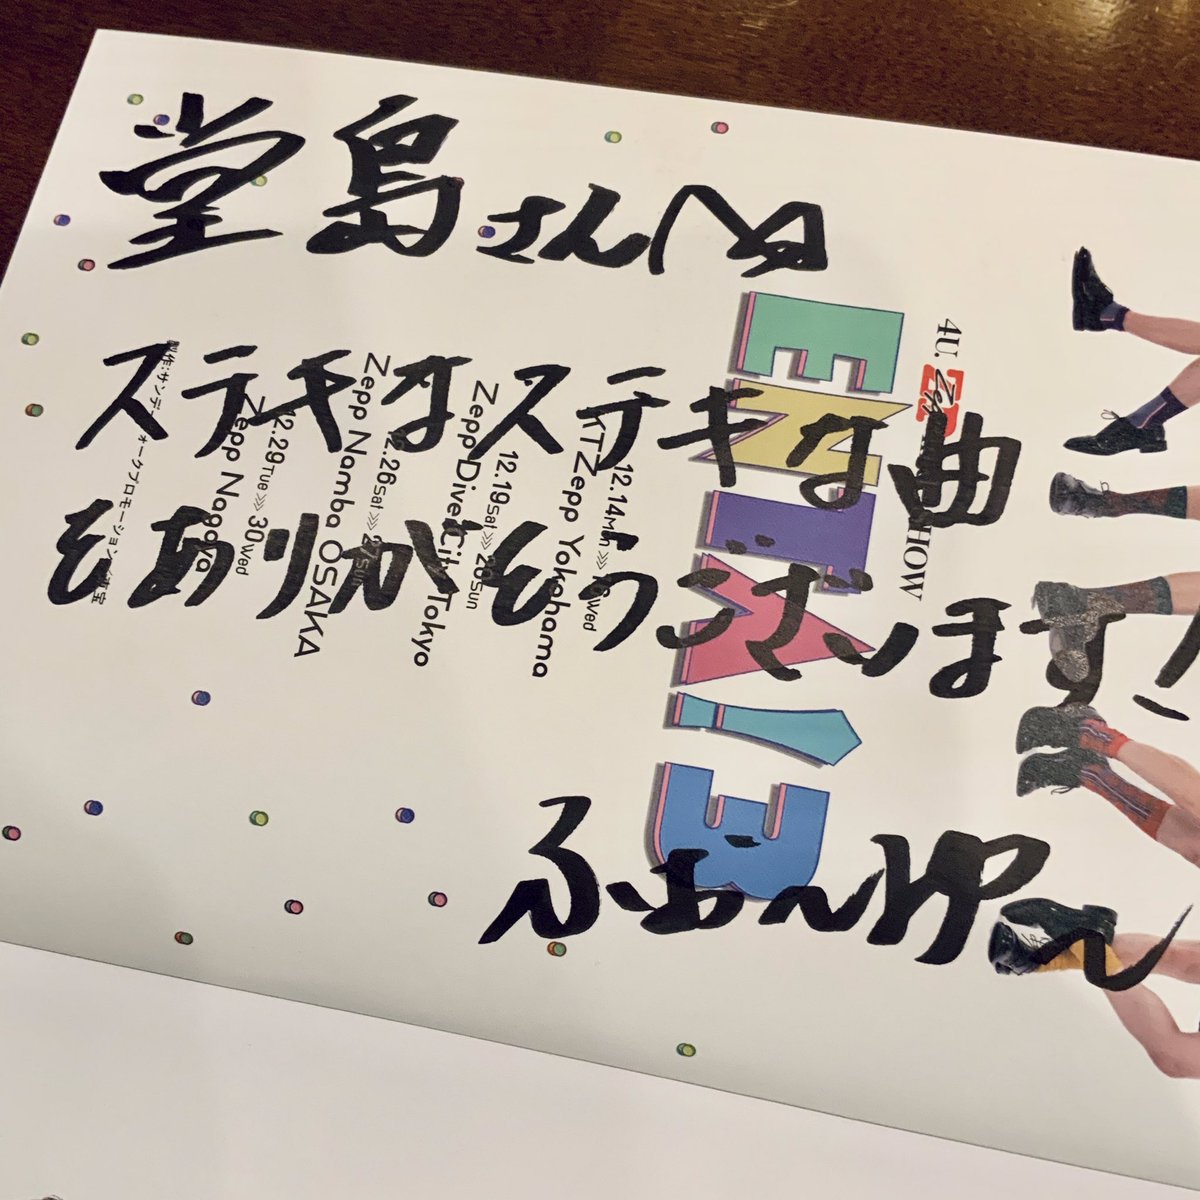 堂島さんへ
ステキなステキな曲
をありがとうございます!
ふぉ〜ゆ〜
4U.
SHOW
ENTA!3
12.14Mon >>> 16wed
KT Zepp Yokohama
12.19Sat >>> 20Sun
Zepp DiverCity Tokyo
12.26Sat >>> 27Sun
Zepp Namba OSAKA
12.29TUE >>> 30WED
Zepp Nagoya
製作:サンデー
ークプロモーション